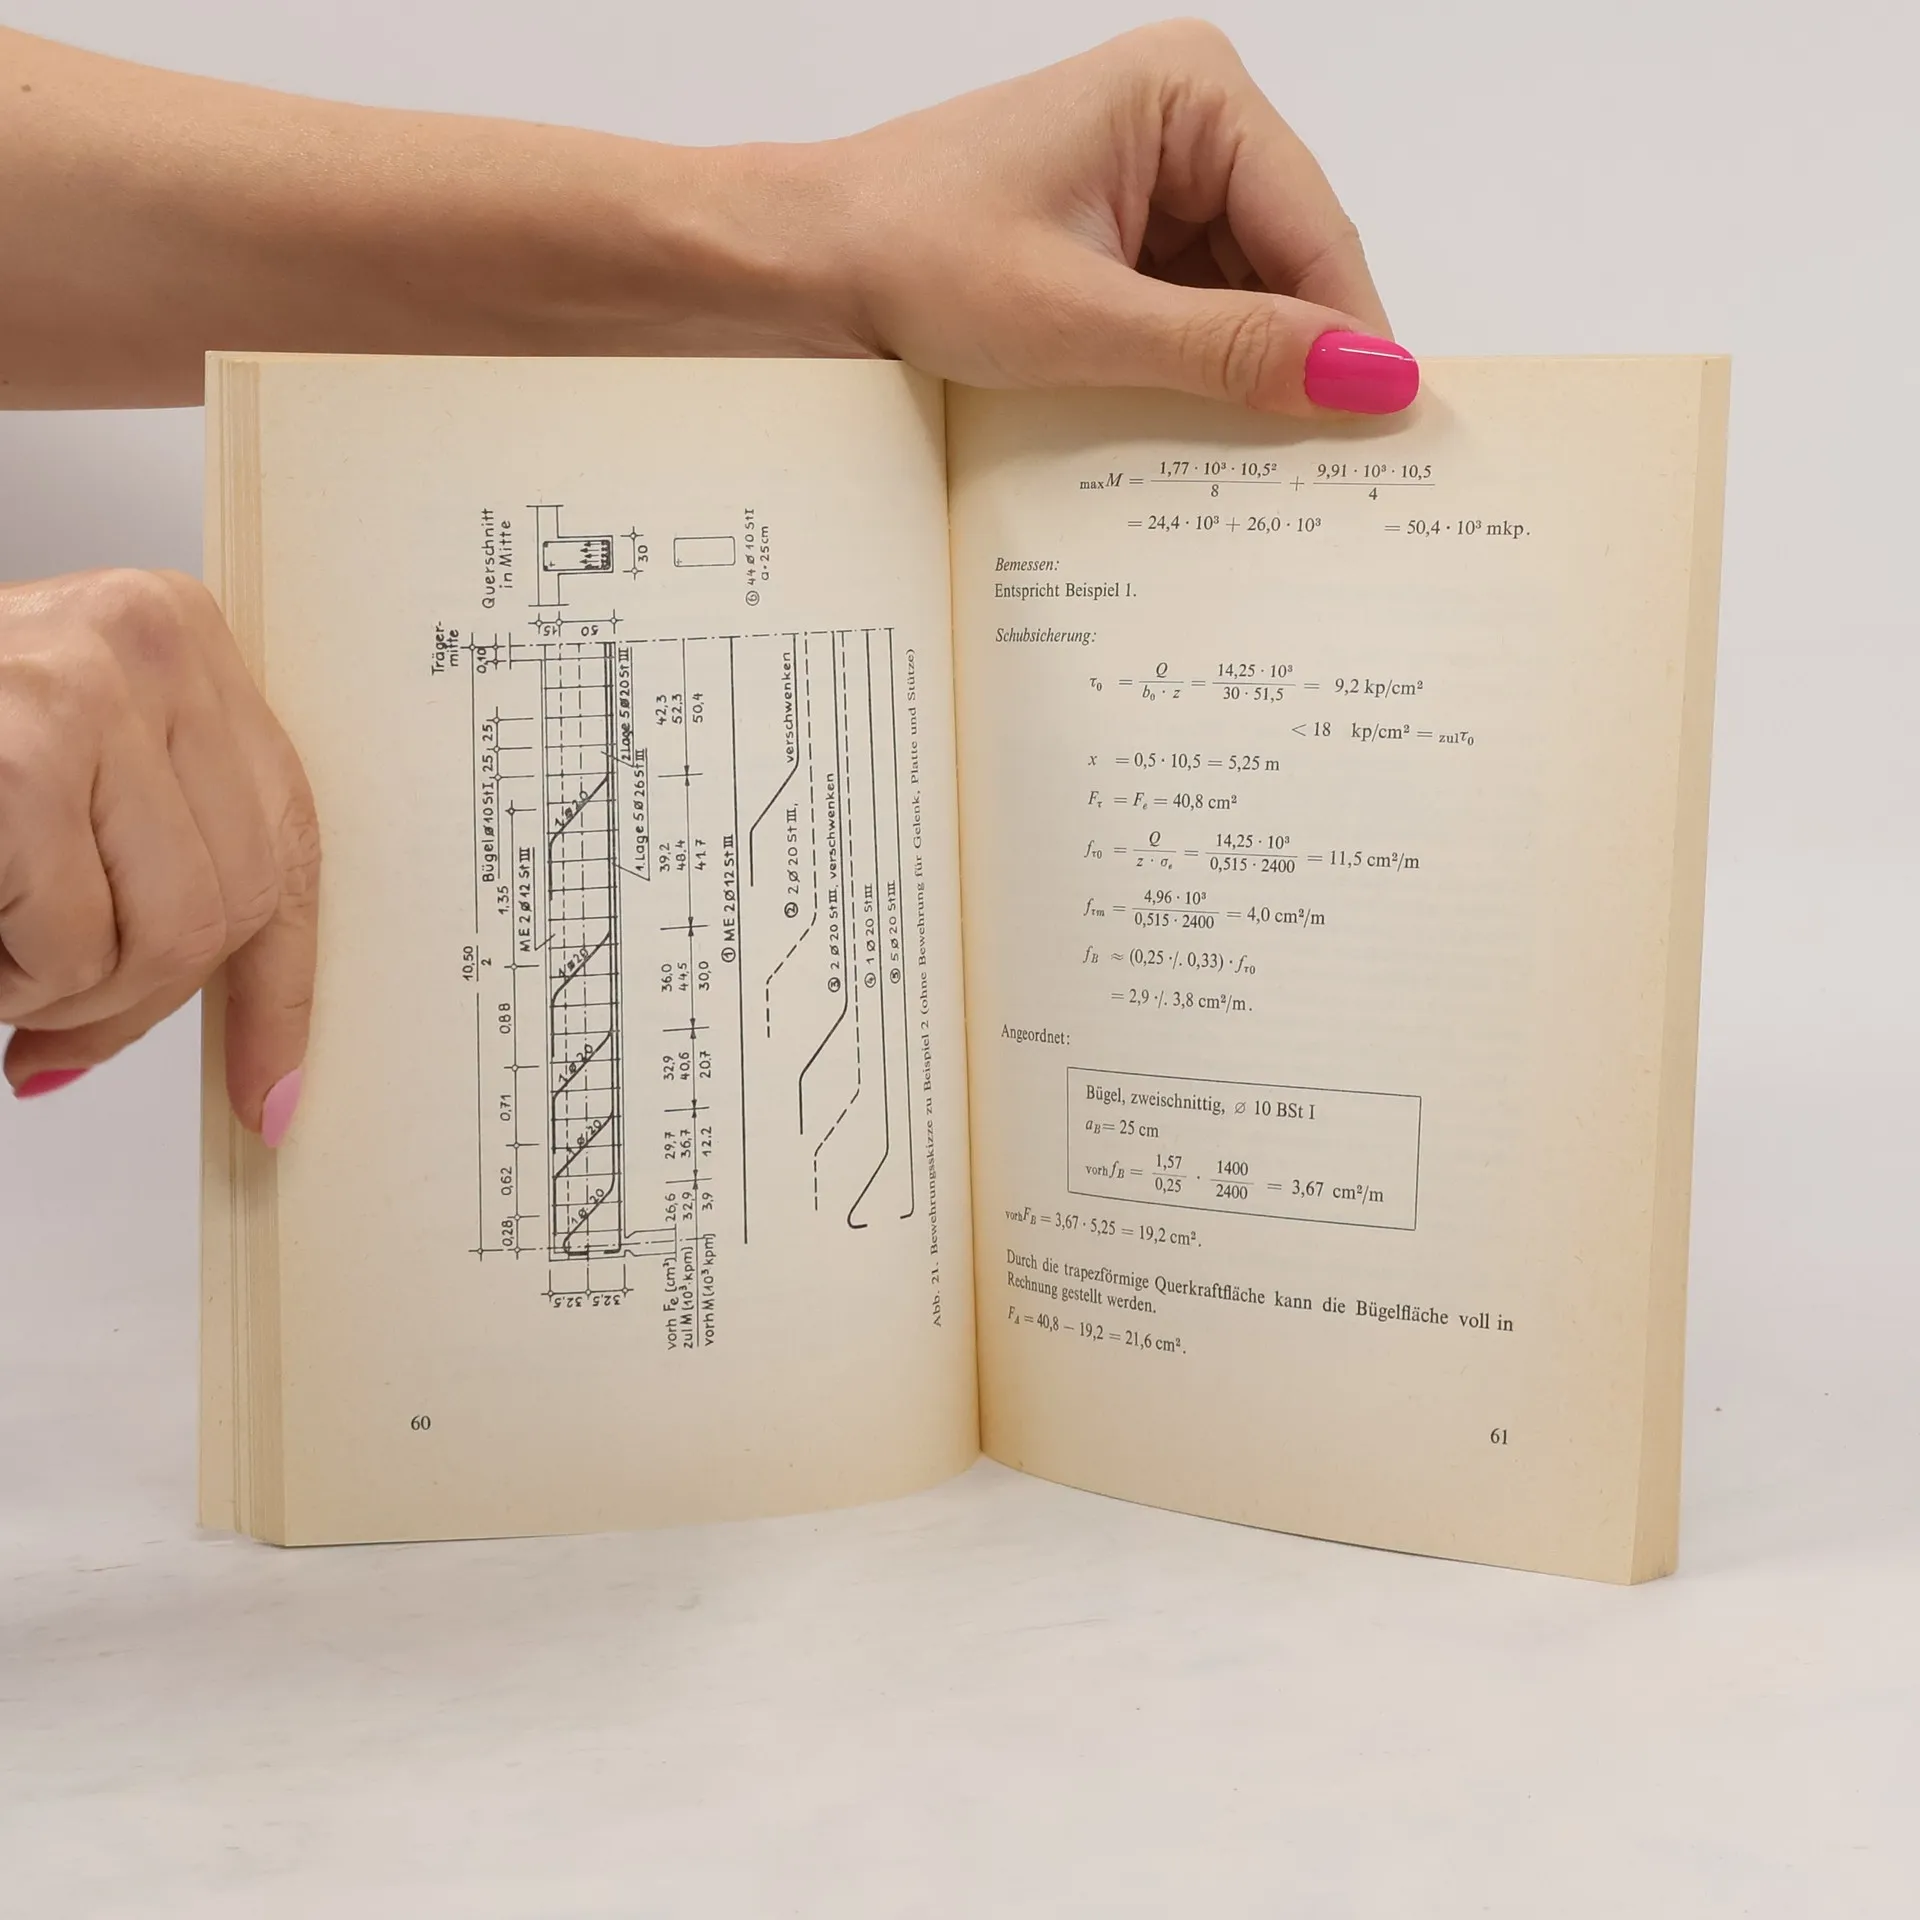 Träger-
mitte
Querschnitt
in Mitte
10,50
2
0,28 0,62 0,71 0,88 1,35 Bügel ⌀ 10 St I 25 25 0,10
ME 2 ⌀ 12 St III
15 50
30
32,5 32,5
2 Lage 5 ⌀ 20 St III
1. Lage 5 ⌀ 26 St III
vorh Fe [cm²] 26,6 29,7 32,9 36,0 39,2 42,3
zul M [10³·kpm] 32,9 36,7 40,6 44,5 48,4 52,3
vorh M [10³·kpm] 3,9 12,2 20,7 30,0 41,7 50,4
⑥ 44 ⌀ 10 St I
a = 25 cm
① ME 2 ⌀ 12 St III
② 2 ⌀ 20 St III, verschwenken
③ 2 ⌀ 20 St III, verschwenken
④ 1 ⌀ 20 St III
⑤ 5 ⌀ 20 St III
Abb. 21. Bewehrungsskizze zu Beispiel 2 (ohne Bewehrung für Gelenk, Platte und Stütze)
60
max M = 1,77 · 10³ · 10,5² / 8 + 9,91 · 10³ · 10,5 / 4
= 24,4 · 10³ + 26,0 · 10³ = 50,4 · 10³ mkp.
Bemessen:
Entspricht Beispiel 1.
Schubsicherung:
τ₀ = Q / b₀ · z = 14,25 · 10³ / 30 · 51,5 = 9,2 kp/cm²
< 18 kp/cm² = zul τ₀
x = 0,5 · 10,5 = 5,25 m
Fτ = Fe = 40,8 cm²
fτ0 = Q / z · σe = 14,25 · 10³ / 0,515 · 2400 = 11,5 cm²/m
fτm = 4,96 · 10³ / 0,515 · 2400 = 4,0 cm²/m
fB ≈ (0,25 ·/. 0,33) · fτ0
= 2,9 ·/. 3,8 cm²/m.
Angeordnet:
Bügel, zweischnittig, ⌀ 10 BSt I
aB = 25 cm
vorh fB = 1,57 / 0,25 · 1400 / 2400 = 3,67 cm²/m
vorh FB = 3,67 · 5,25 = 19,2 cm².
Durch die trapezförmige Querkraftfläche kann die Bügelfläche voll in
Rechnung gestellt werden.
FA = 40,8 − 19,2 = 21,6 cm².
61